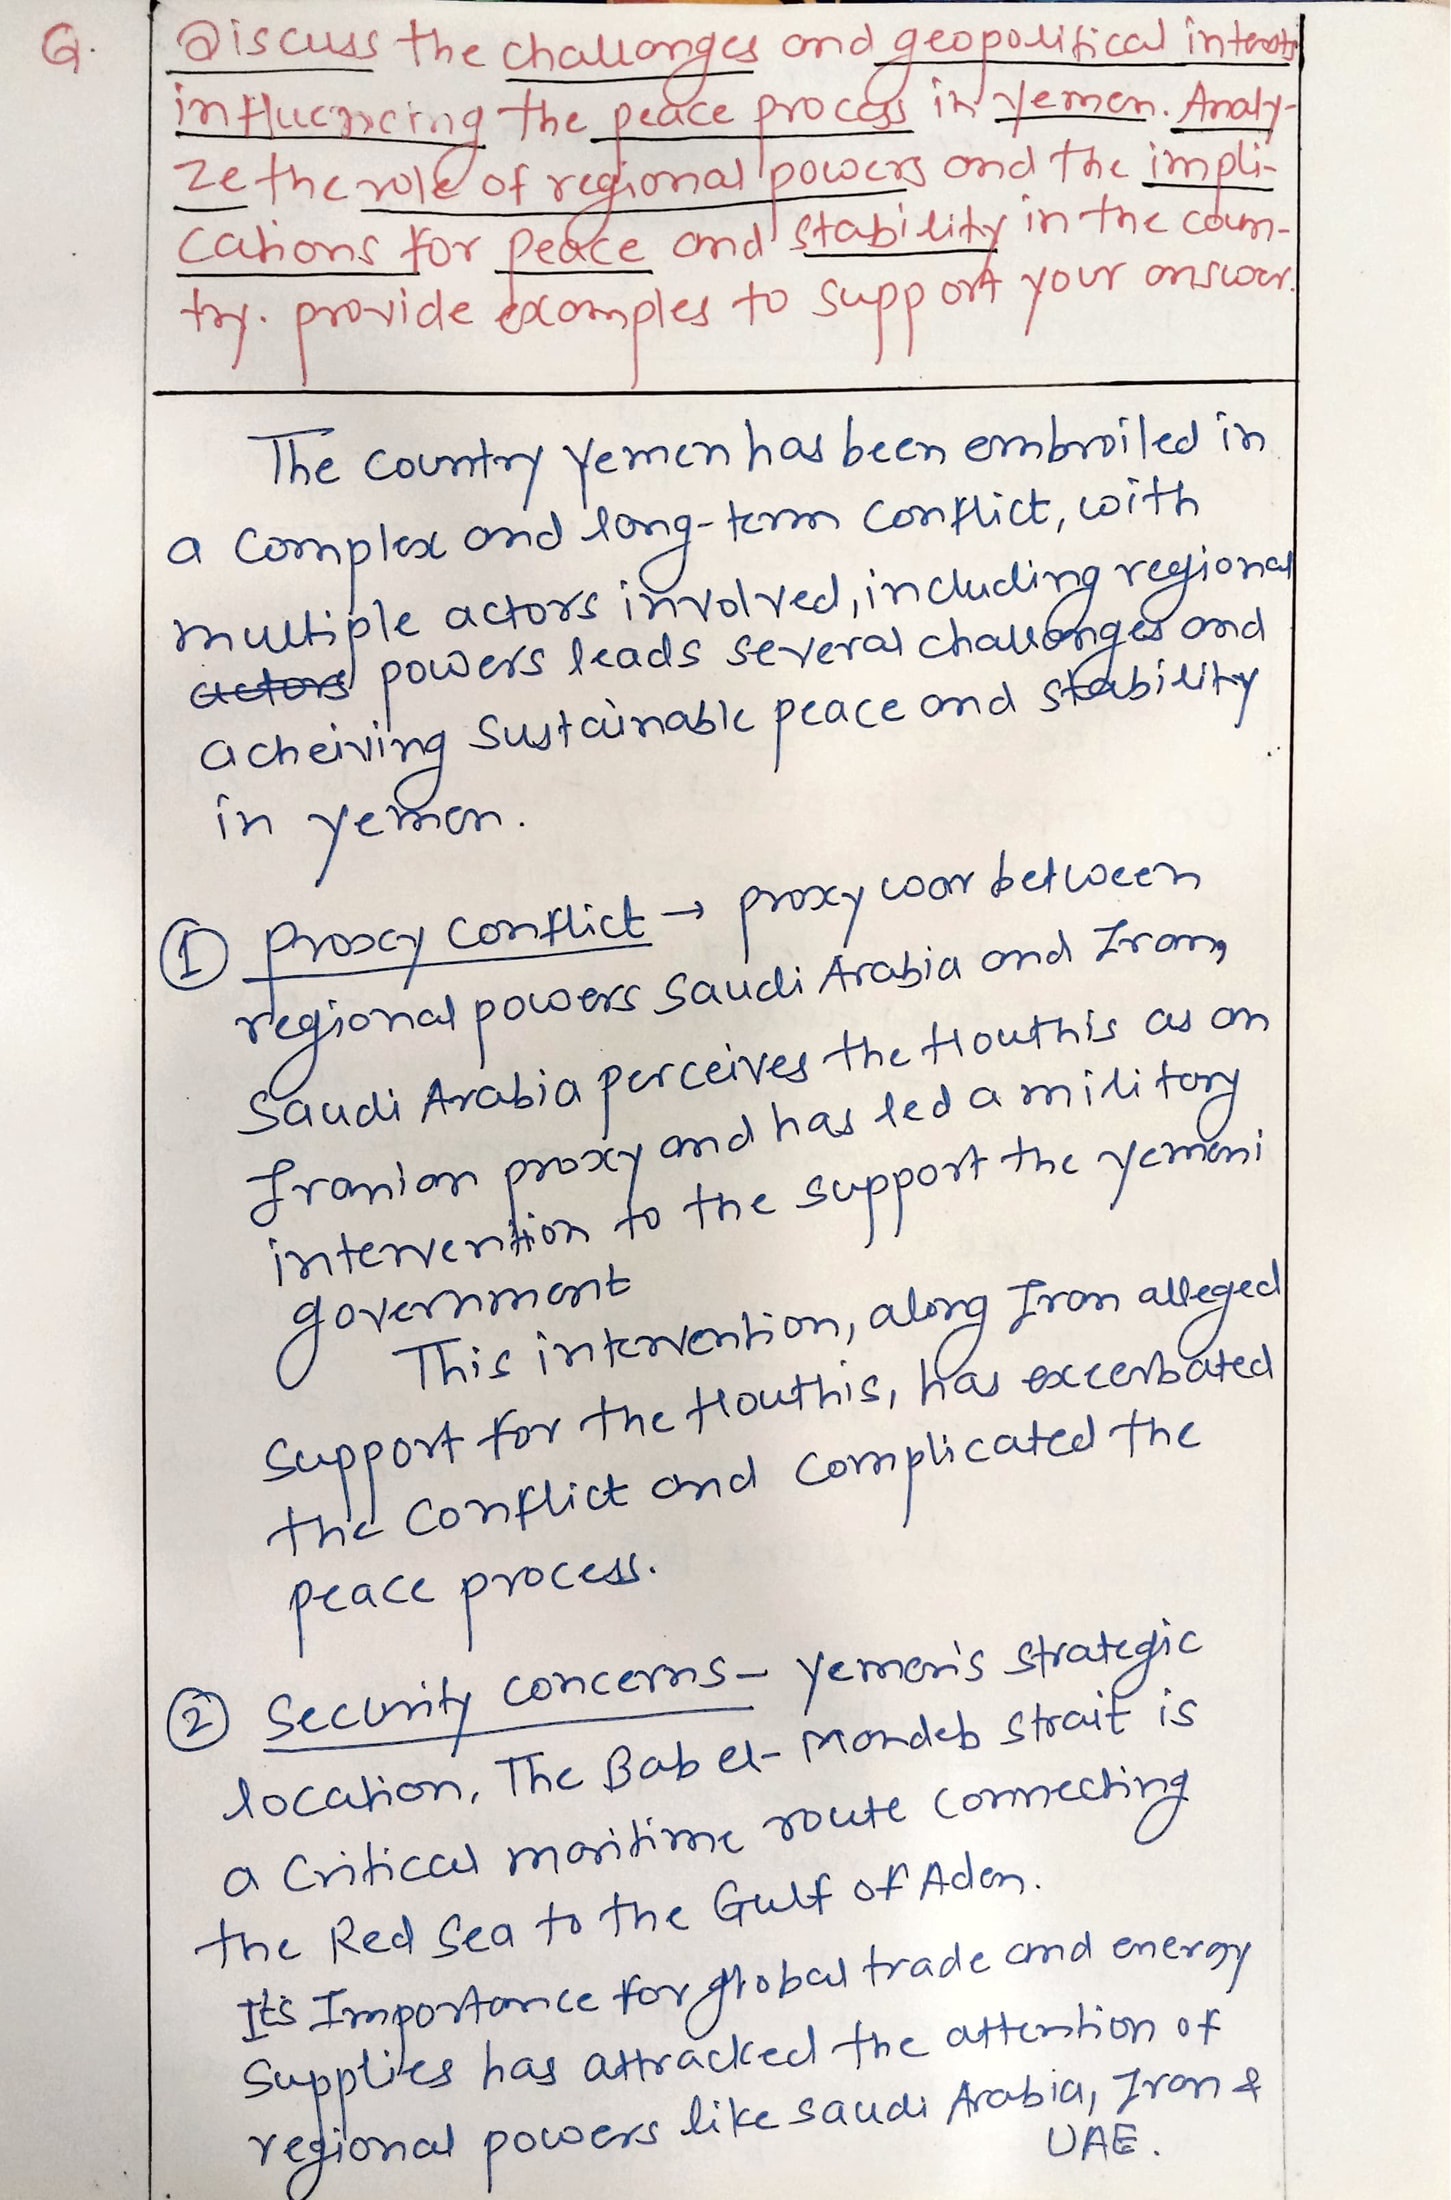 Q.
Discuss the challanges and geopolitical interests
influencing the peace process in Yemen. Analy-
ze the role of regional powers and the impli-
cations for peace and stability in the coun-
try. provide examples to support your answer.
The country Yemen has been embroiled in
a complex and long-term conflict, with
multiple actors involved, including regional
actors powers leads several challanges and
acheiving sustainable peace and stability
in yemen.
① Proxy conflict → proxy war between
regional powers Saudi Arabia and Iran,
Saudi Arabia perceives the Houthis as an
Iranian proxy and has led a military
intervention to the support the yemeni
government
This intervention, along Iran alleged
support for the Houthis, has excerbated
the conflict and complicated the
peace process.
② Security concerns- Yemen's strategic
location, The Bab el-Mandeb strait is
a critical maritime route connecting
the Red Sea to the Gulf of Aden.
It's Importance for global trade and energy
supplies has attracked the attention of
regional powers like saudi Arabia, Iran &
UAE.